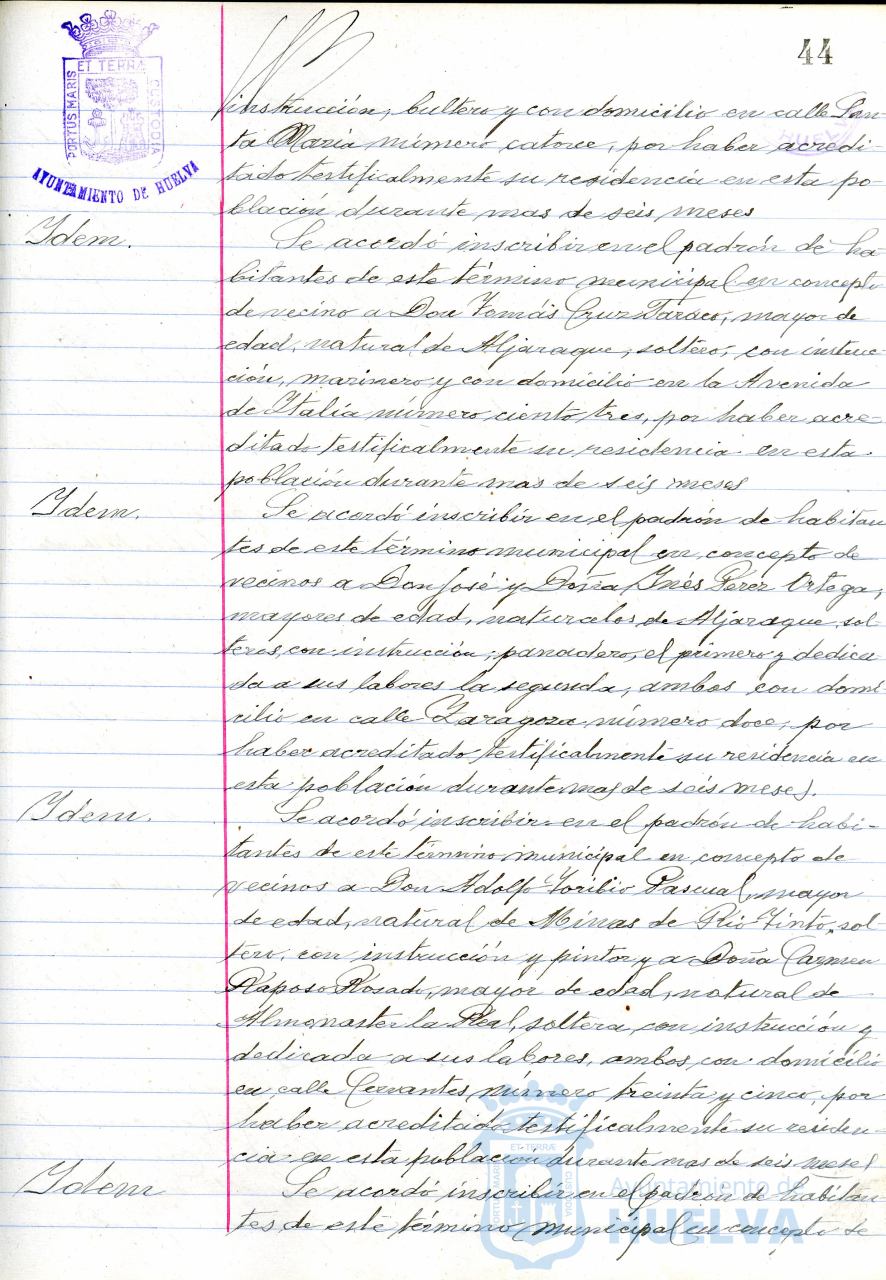 44
PORTUS MARIS ET TERRÆ CUSTODIA
AYUNTAMIENTO DE HUELVA
instrucción, bultero y con domicilio en calle San-
ta María número catorce, por haber acredi-
tado testificalmente su residencia en esta po-
blación durante mas de seis meses
Ydem.
Se acordó inscribir en el padrón de ha-
bitantes de este término municipal en concepto
de vecino a Don Tomás Cruz Taraco, mayor de
edad, natural de Aljaraque, soltero, con instruc-
ción, marinero y con domicilio en la Avenida
de Italia número ciento tres, por haber acre-
ditado testificalmente su residencia en esta
población durante mas de seis meses
Ydem.
Se acordó inscribir en el padrón de habitan-
tes de este término municipal en concepto de
vecinos a Don José y Doña Inés Perez Ortega,
mayores de edad, naturales de Aljaraque, sol-
teros, con instrucción, panadero, el primero y dedica
da a sus labores la segunda, ambos con domi-
cilio en calle Zaragoza número doce, por
haber acreditado testificalmente su residencia en
esta población durante mas de seis meses.
Ydem.
Se acordó inscribir en el padrón de habi-
tantes de este término municipal en concepto de
vecinos a Don Adolfo Toribio Pascual, mayor
de edad, natural de Minas de Rio Tinto, sol-
tero, con instrucción y pintor y a Doña Carmen
Raposo Rosado, mayor de edad, natural de
Almonaster la Real, soltera, con instrucción y
dedicada a sus labores, ambos con domicilio
en calle Cervantes número treinta y cinco, por
haber acreditado testificalmente su residen-
cia en esta población durante mas de seis meses
Ydem
Se acordó inscribir en el padrón de habitan-
tes de este término municipal en concepto de
Ayuntamiento de
HUELVA